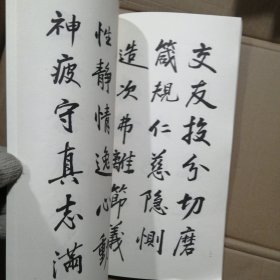 交友投分切磨
箴規仁慈隐恻
造次弗離節義
性静情逸心動
神疲守真志满